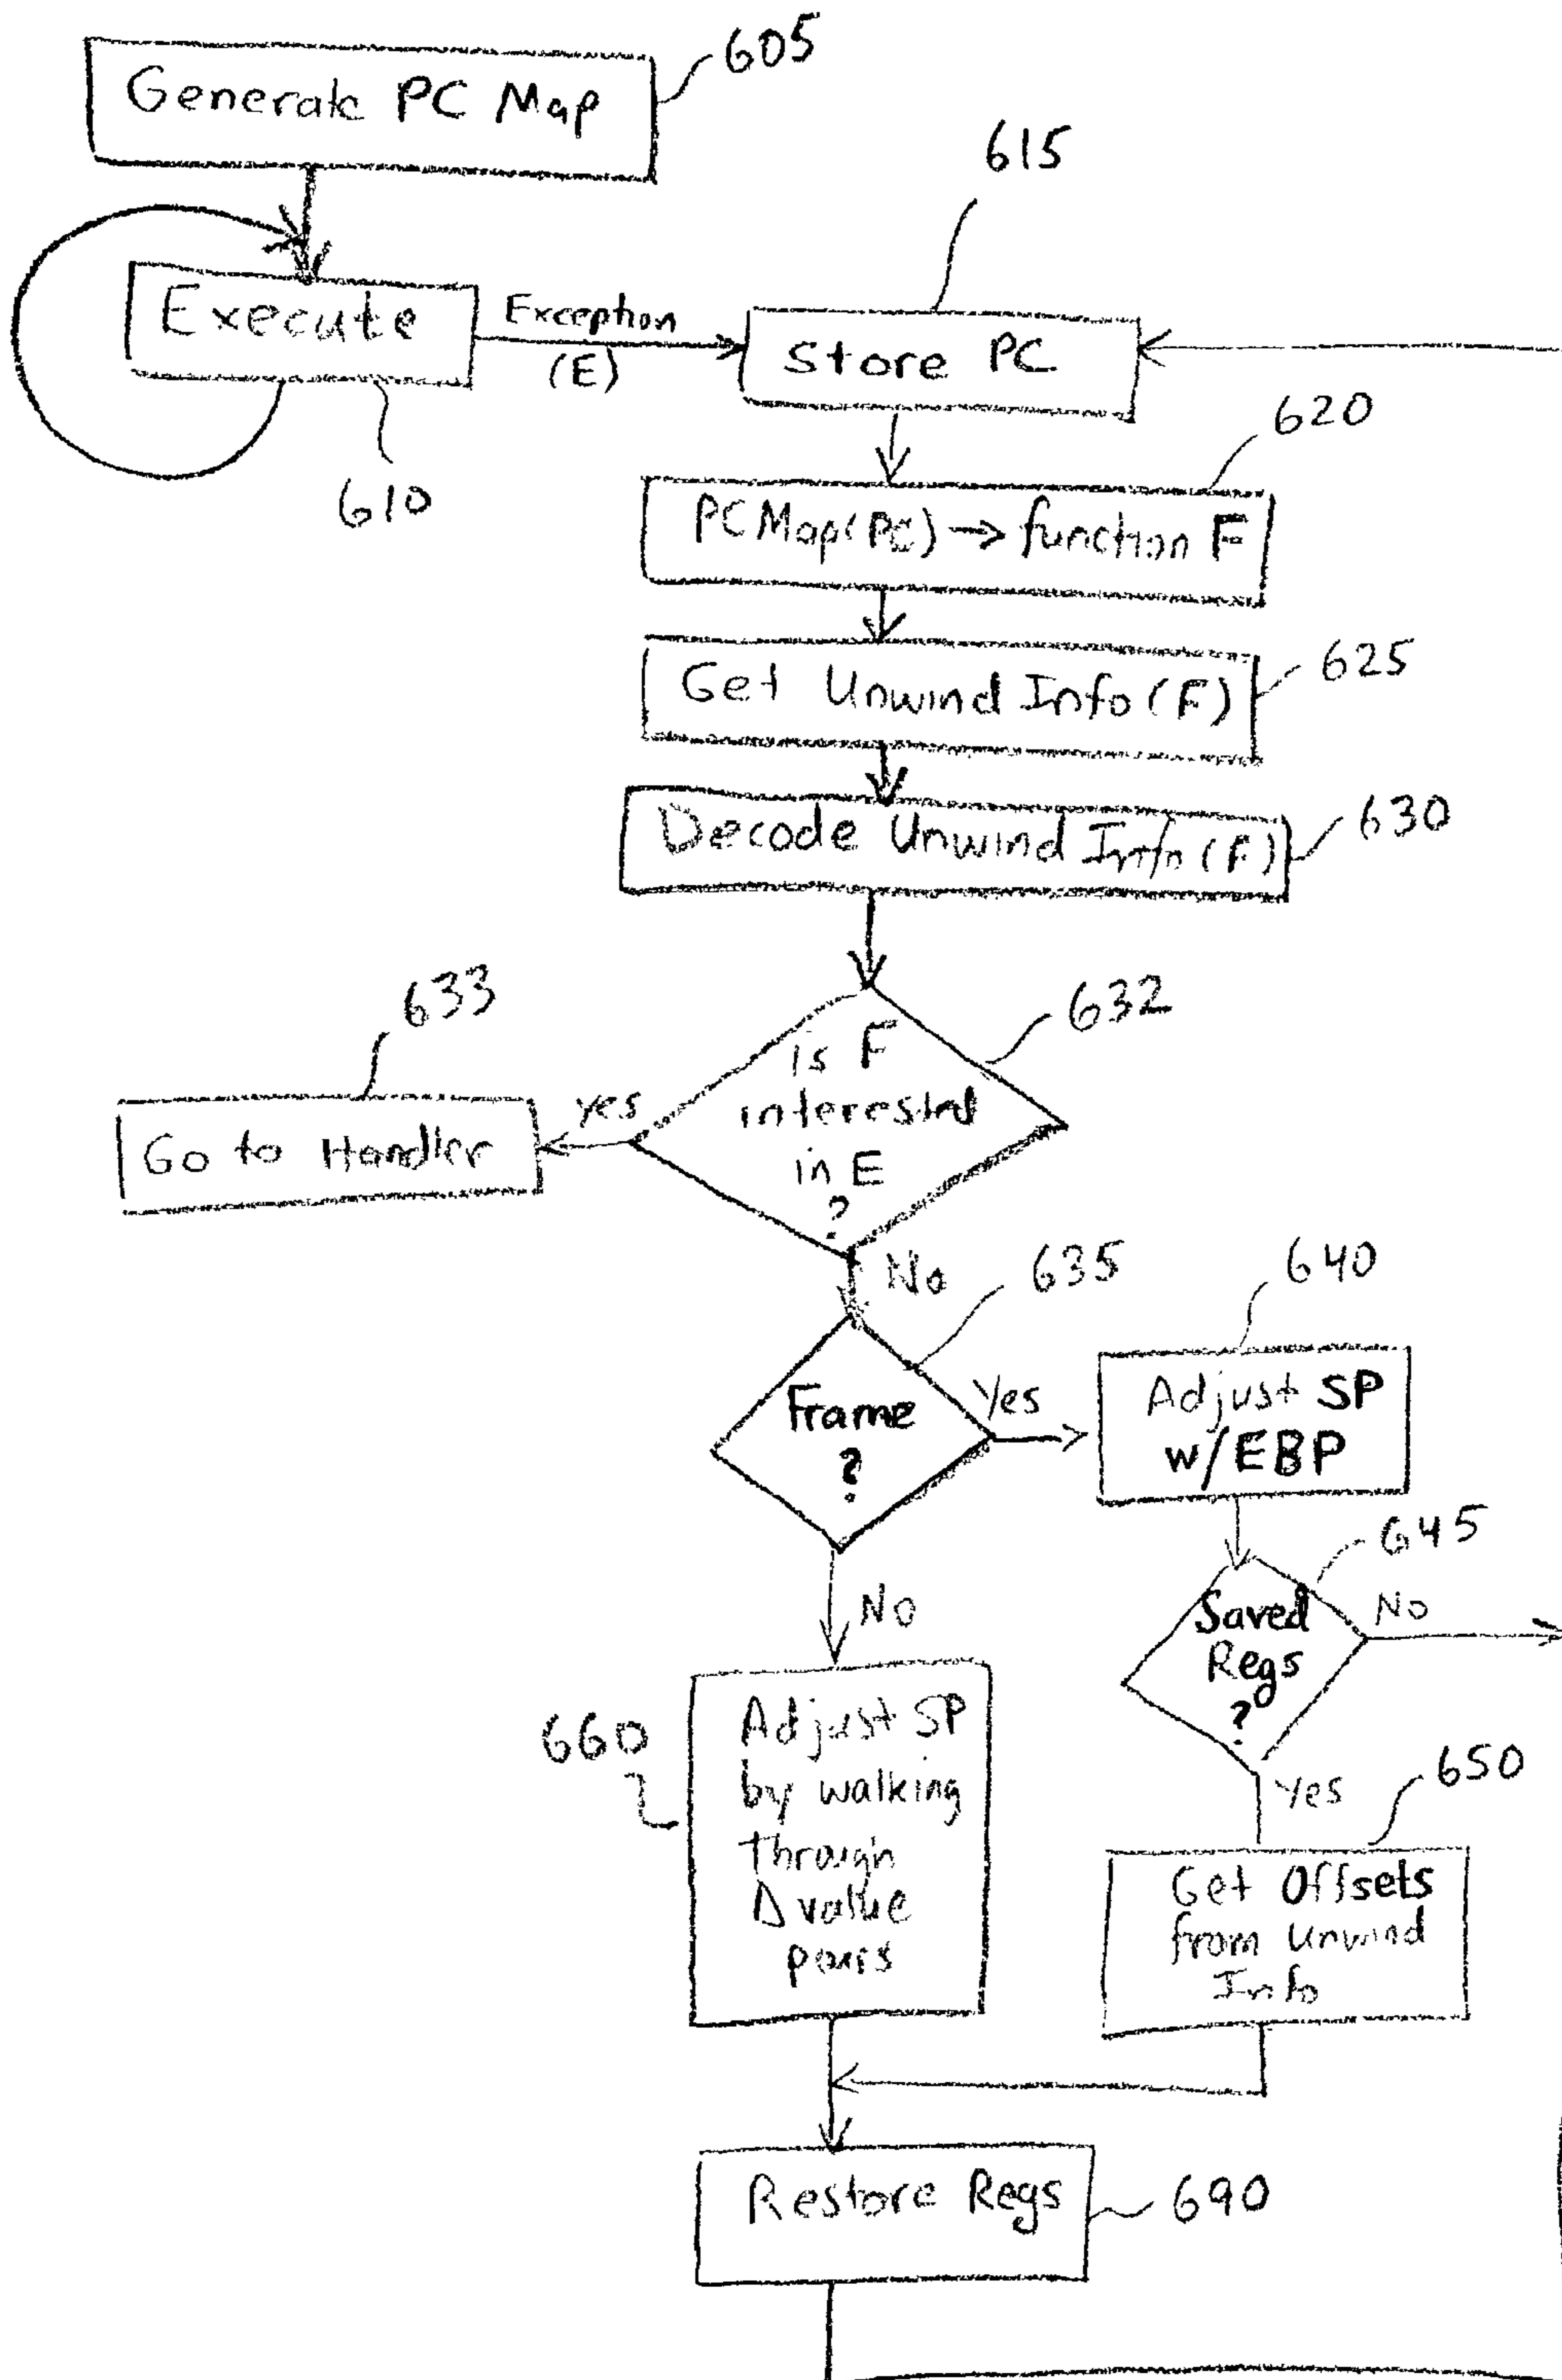 605
Generate PC Map
615
Execute
Exception
(E)
Store PC
610
620
PC Map(PC) → function F
625
Get Unwind Info (F)
630
Decode Unwind Info (F)
633
632
is F
interested
in E
?
yes
Go to Handler
No
635
640
Frame
?
Yes
Adjust SP
w/EBP
645
No
Saved
Regs
?
No
660
Adjust SP
by walking
through
Δ value
pairs
Yes
650
Get Offsets
from Unwind
Info
Restore Regs
690